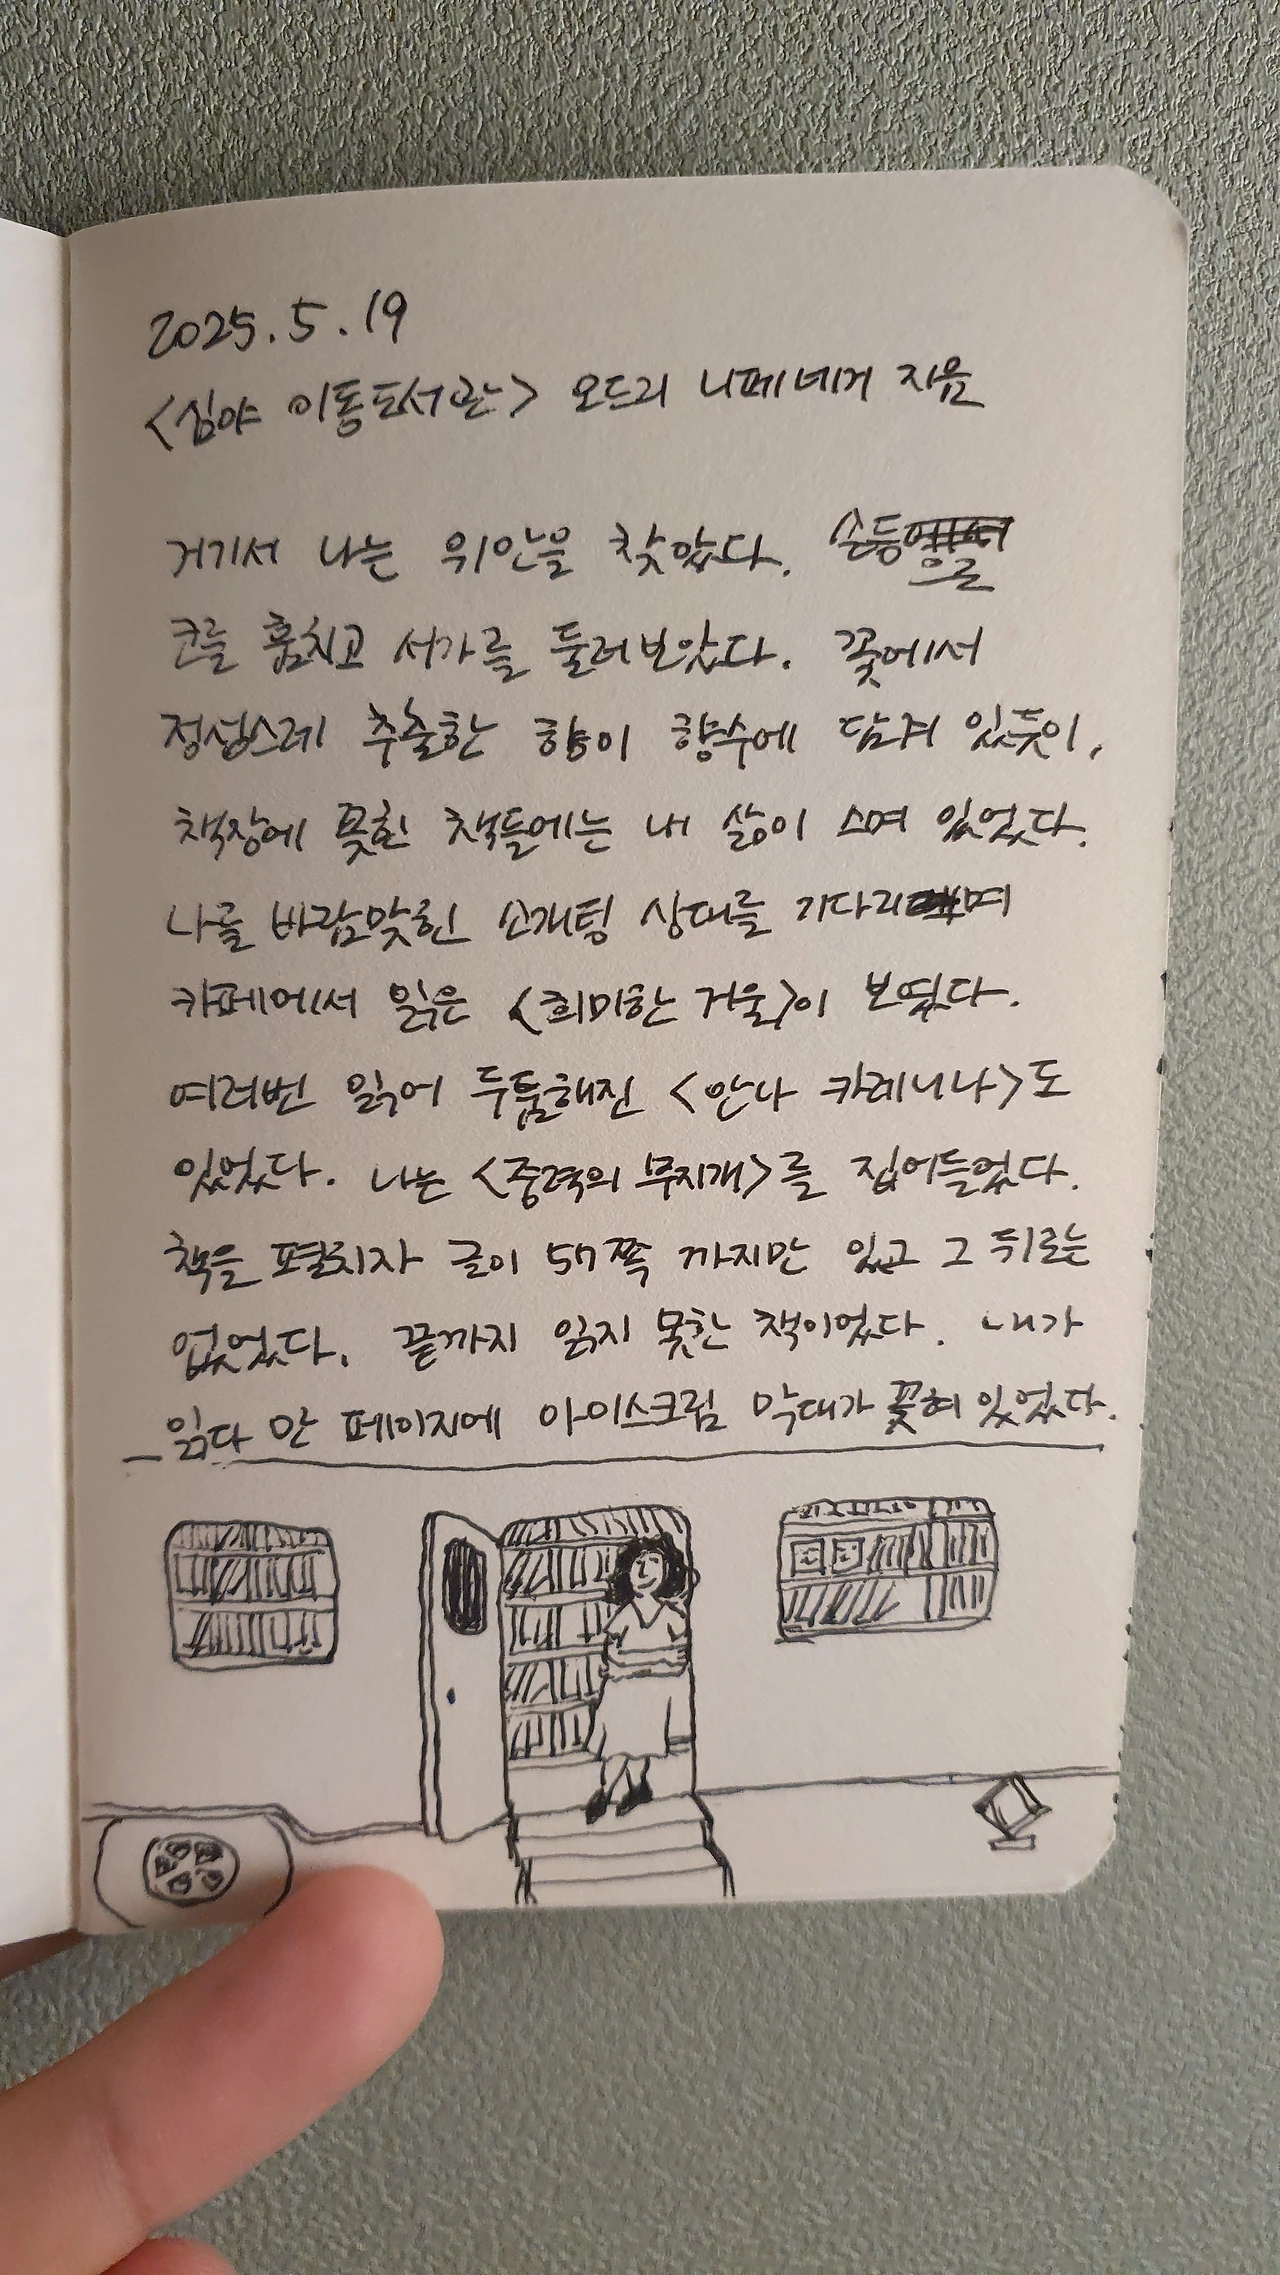 2025.5.19
<심야 이동도서관> 오드리 니페네거 지음
거기서 나는 위안을 찾았다. 손등으로
코를 훔치고 서가를 둘러보았다. 꽃에서
정성스레 추출한 향이 향수에 담겨 있듯이,
책장에 꽂힌 책들에는 내 삶이 스며 있었다.
나를 바람맞힌 소개팅 상대를 기다리며
카페에서 읽은 <희미한 거울>이 보였다.
여러번 읽어 두툼해진 <안나 카레니나>도
있었다. 나는 <중력의 무지개>를 집어들었다.
책을 펼치자 글이 57쪽 까지만 있고 그 뒤로는
없었다. 끝까지 읽지 못한 책이었다. 내가
읽다 만 페이지에 아이스크림 막대가 꽂혀 있었다.